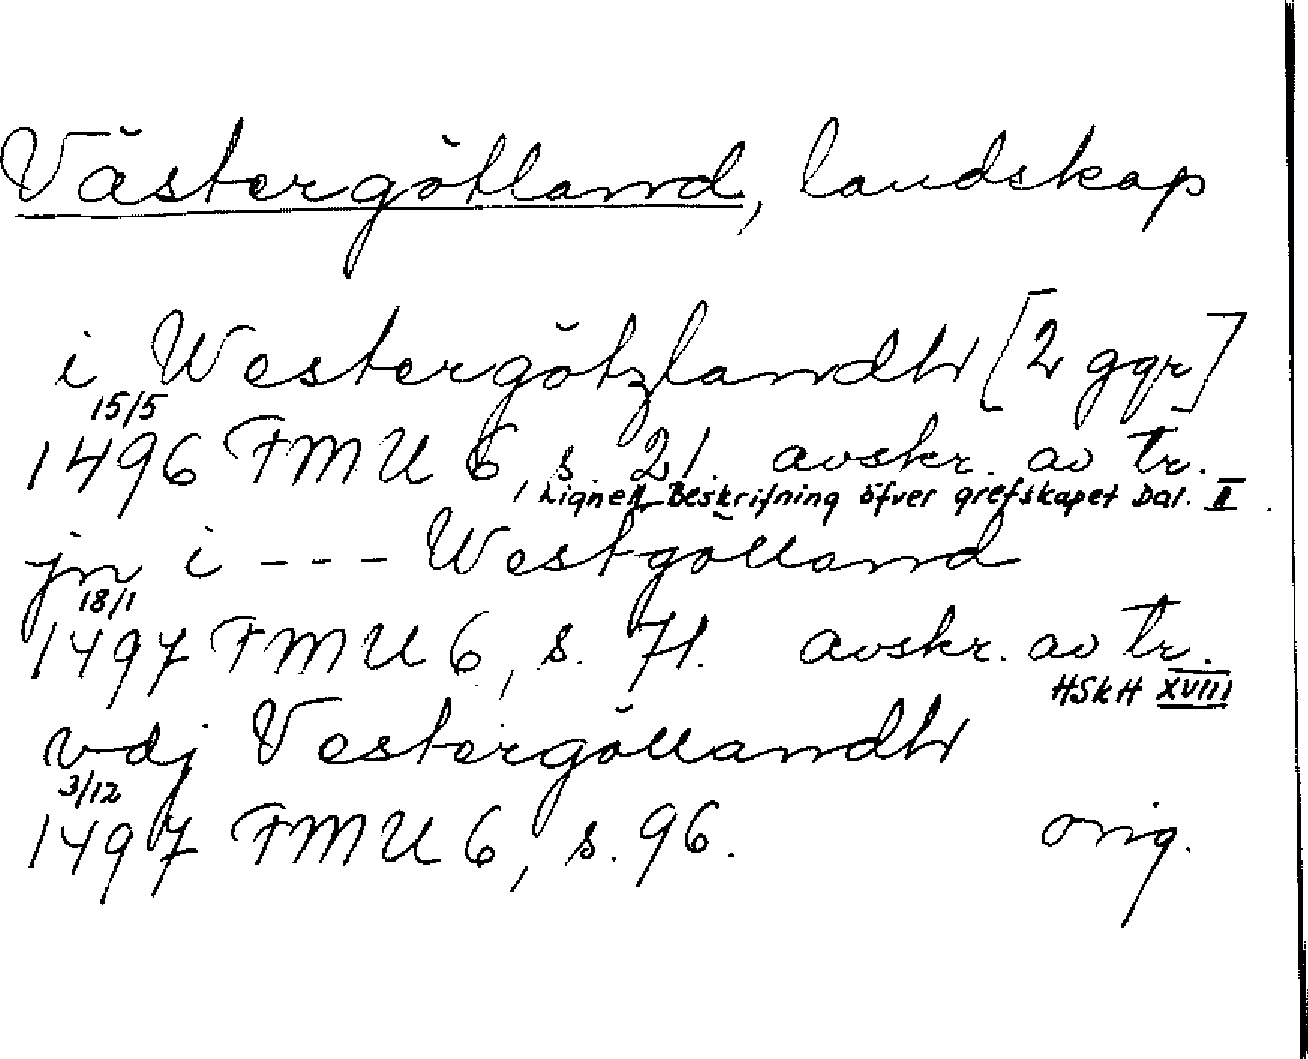 Västergötland, landskap
i Westergötzlandh [2 ggr]
15/5
1496 FMU 6, s. 21. avskr. av tr.
Lignell Beskrifning öfver grefskapet Dal. II.
jn i --- Westgötland
18/1
1497 FMU 6, s. 71. avskr. av tr.
HSkH XVIII
vdj Vestergöttlandh
3/12
1497 FMU 6, s. 96. orig.